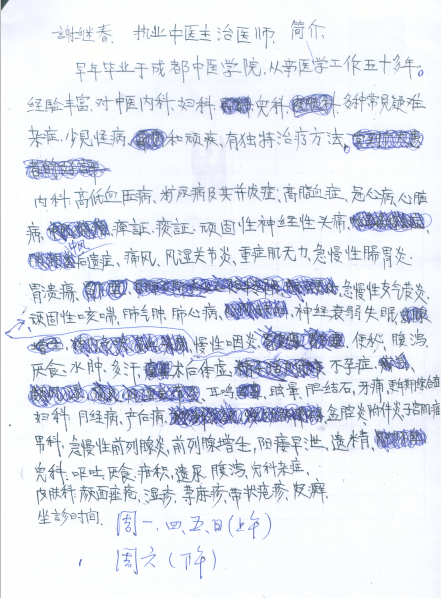 謝继春 执业中医主治医师 简介
早年毕业于成都中医学院,从事医学工作五十多年。
经验丰富,对中医内科,妇科,儿科,各种常见疑难
杂症,少见怪病,和顽疾,有独特治疗方法。
内科:高低血压病,糖尿病及其并发症,高脂血症,冠心病,心脏
病,痹証,痿証,顽固性神经性头痛,
中风后遗症,痛风,风湿关节炎,重症肌无力,急慢性肠胃炎.
胃溃疡,急慢性支气管炎,
顽固性咳喘,肺气肿,肺心病,神经衰弱失眠
慢性咽炎,便秘,腹泻,
厌食,水肿,多汗,术后体虚,不孕症,
耳鸣,眩晕,胆结石,牙痛,更年期综合症
妇科:月经病,产后病,盆腔炎附件炎子宫肌瘤
男科:急慢性前列腺炎,前列腺增生,阳痿早泄,遗精,
儿科:呕吐厌食,疳积,遗尿,腹泻,儿科杂症,
皮肤科:颜面痤疮,湿疹,荨麻疹,带状疱疹,皮癣.
坐診时间.
周一、四、五、日(上午)
周六(下午)